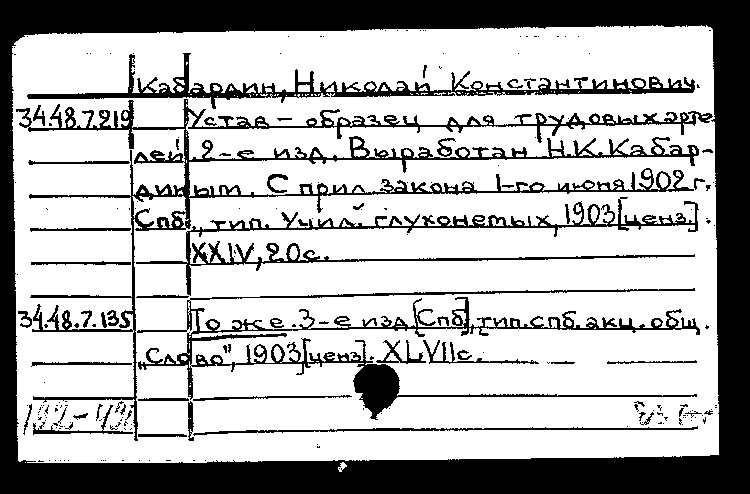 Кабардин, Николай Константинович.
34.48.7.219 Устав – образец для трудовых арте
лей. 2-е изд. Выработан Н.К. Кабар-
диным. С прил. закона 1-го июня 1902 г.
Спб., тип. Учил. глухонемых, 1903 [ценз.].
XXIV, 20 с.
34.48.7.135 То же. 3-е изд. [Спб], тип. спб. акц. общ.
„Слово", 1903 [ценз]. XLVII с.